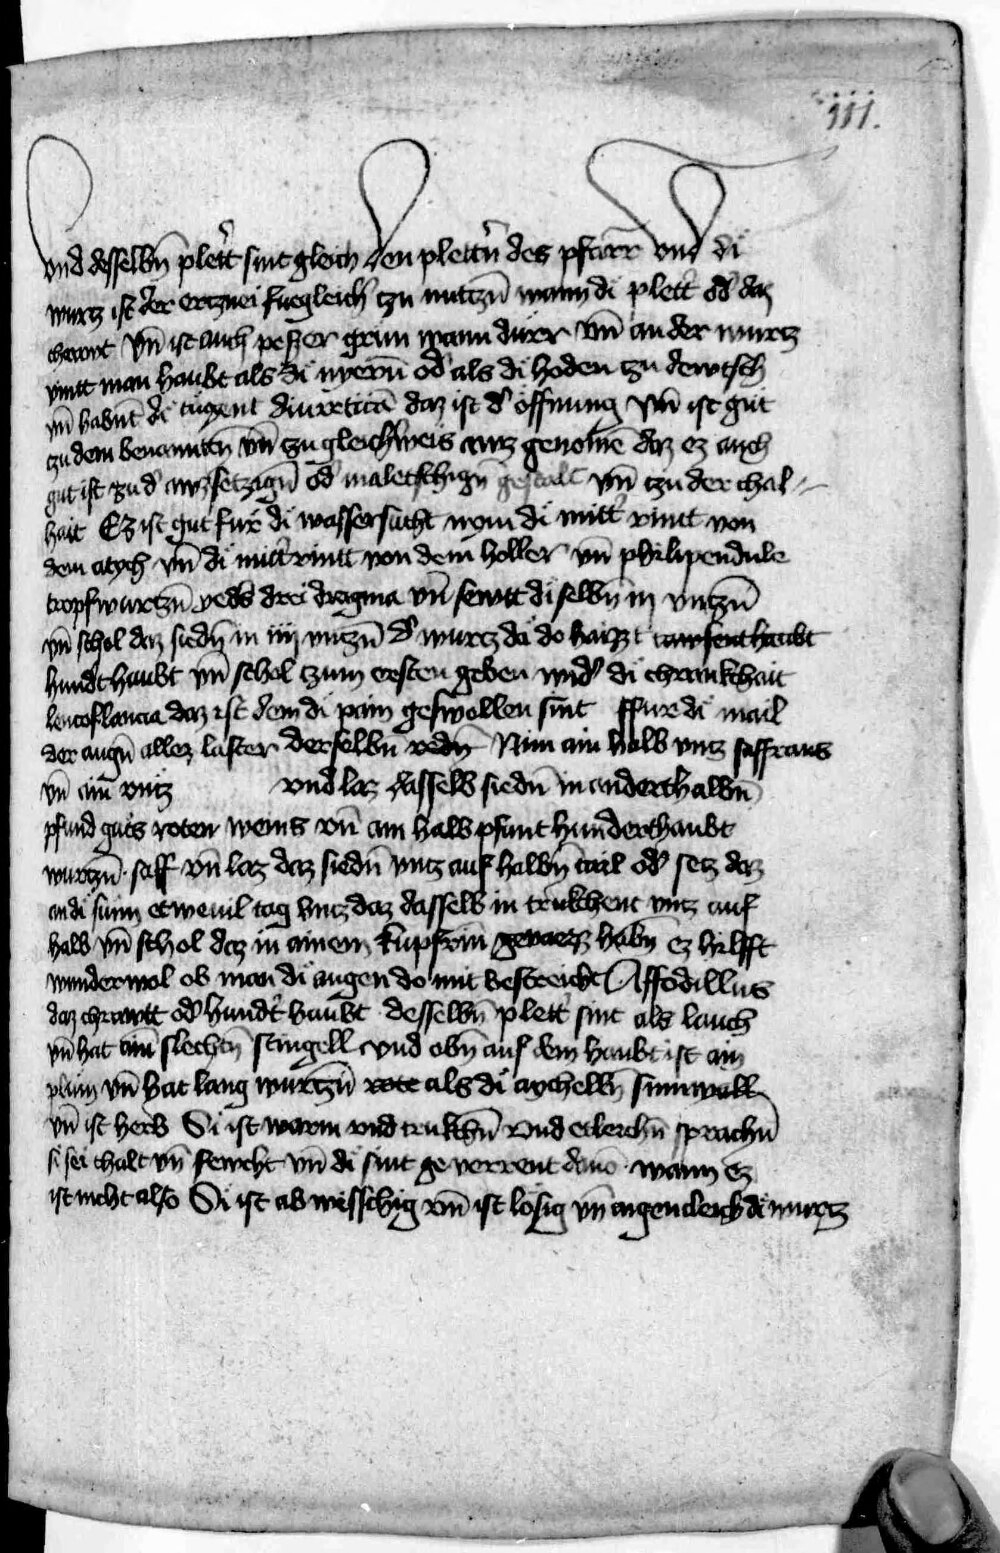 iii.
vnd desselbn̄ plett̕ sint gleich den plettn̕ des pfarr vnd di
wurtz ist der ertznei fuegleich tzu nutzn̄ wann di plett̕ od̕ daz
chrawt vn̄ ist auch pesser grün wann dürr vn̄ an der wurtz
vint man haubt als di nyern̄ od̕ als di hoden tzu dewtsch
vn̄ habnt di tugent diureticā daz ist d̕ öffnung vn̄ ist gut
tzu dem benanntn̄ vn̄ tzu gleich̕weis awz genomē daz ez auch
gut ist zu d̕ awzsetzign̄ od̕ maletschign̄ gestalt vn̄ tzu der chal⸗
hait Ez ist gut für di wassersucht nym di mitt̕ rintt von
dem atych vn̄ di mitt̕ rintt von dem holler vn̄ philipendule
tropfwurtzn̄ yeds drei dragma vn̄ sewtt di selbn̄ in vntzn̄
vn̄ schol daz siedn̄ in iiij vntzn̄ d̕ wurtz da do haizzt tawsent haubt
hundt haubt vn̄ schol tzum ersten geben wid̕ di chrankchait
leucoflancia daz ist dem di pain geswollen sint ffur di mail
der augn̄ allez laster derselbn̄ redn̄ Nim ain halb vntz saffrans
vn̄ ain vntz vnd laz dasselb siedn̄ in anderthalbn̄
pfund guts roten weins vn̄ ain halb pfunt hunderthaubt
wurtzn̄ saff vn̄ laz daz siedn̄ vntz auf halbn̄ tail od̕ setz daz
an di sunn etwevil tag vntz daz dasselb in trukchent vntz auf
halb vn̄ schol daz in ainem kupfrin̄ gevaezz habn̄ ez hilfft
wunderwol ob man di augen do mit bestreicht Affodillus
daz chrawtt od̕ hundt̕ haubt desselbn̄ plett̕ sint als lauch
vn̄ hat ain slechtn̄ stingell vnd obn̄ auf dem haubt ist ain
plum vn̄ hat lang wurtzn̄ rote als di aychelln̄ sinwell
vn̄ ist herb Si ist warm vnd trukchn̄ vnd etlerchn̄ sprachn̄
si sei chalt vn̄ fewcht vn̄ di sint geverrent dauō wann ez
ist nicht also Si ist ab wisschig vn̄ ist lösig vn̄ aigencleich di wurtz